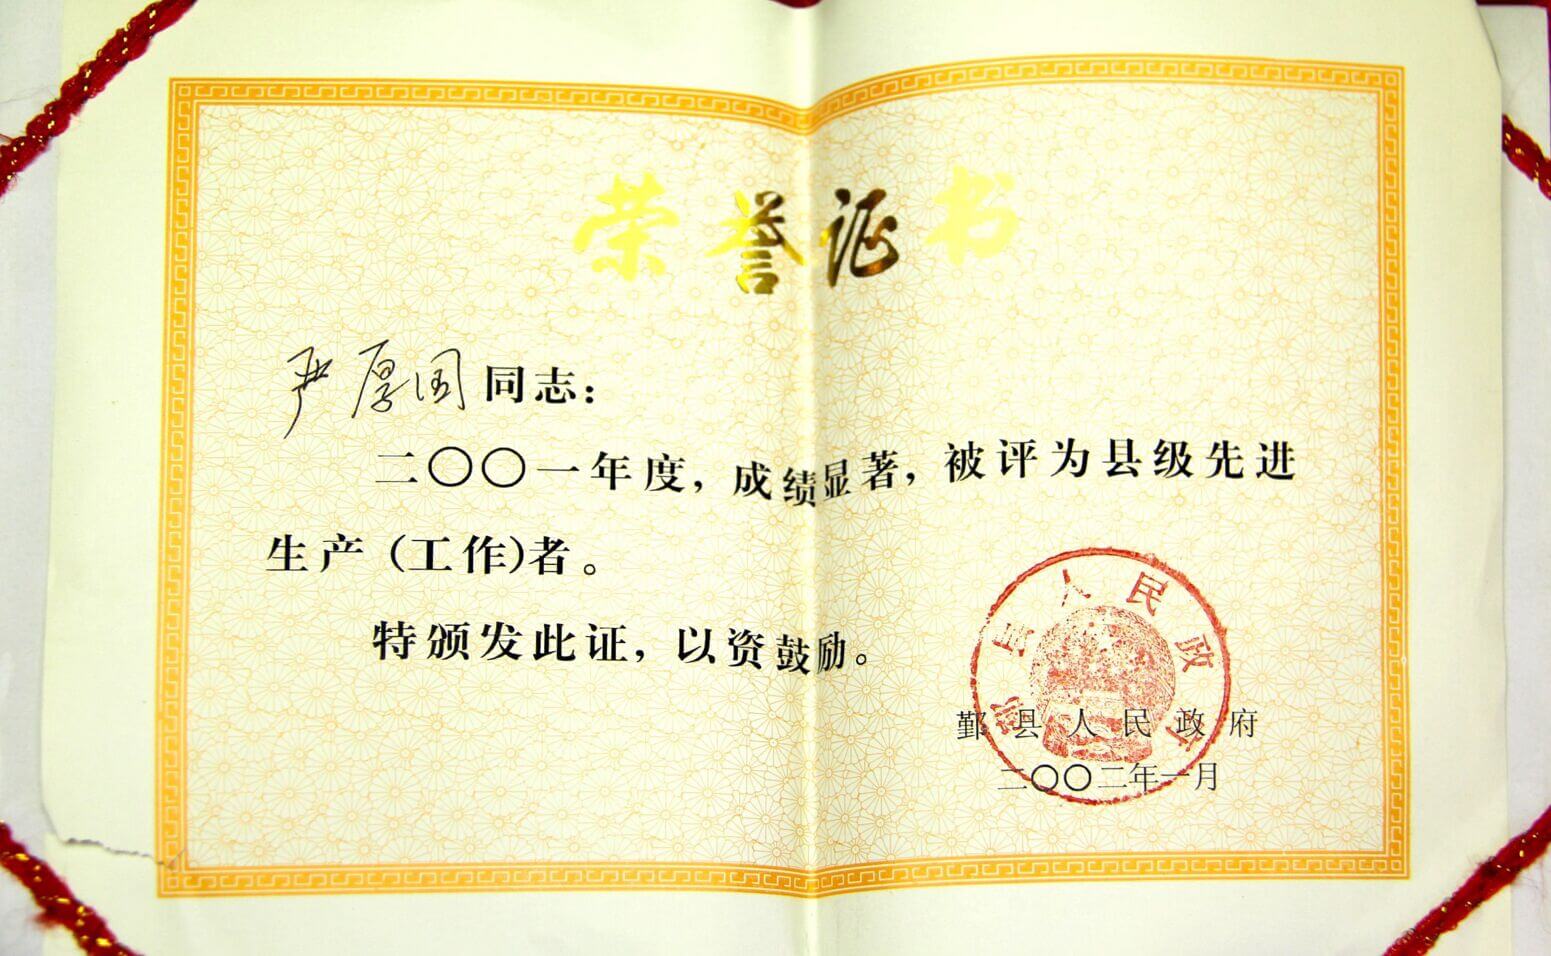 荣誉证书
严厚国同志：
二〇〇一年度，成绩显著，被评为县级先进
生产（工作）者。
特颁发此证，以资鼓励。
鄞县人民政府
鄞县人民政府
二〇〇二年一月